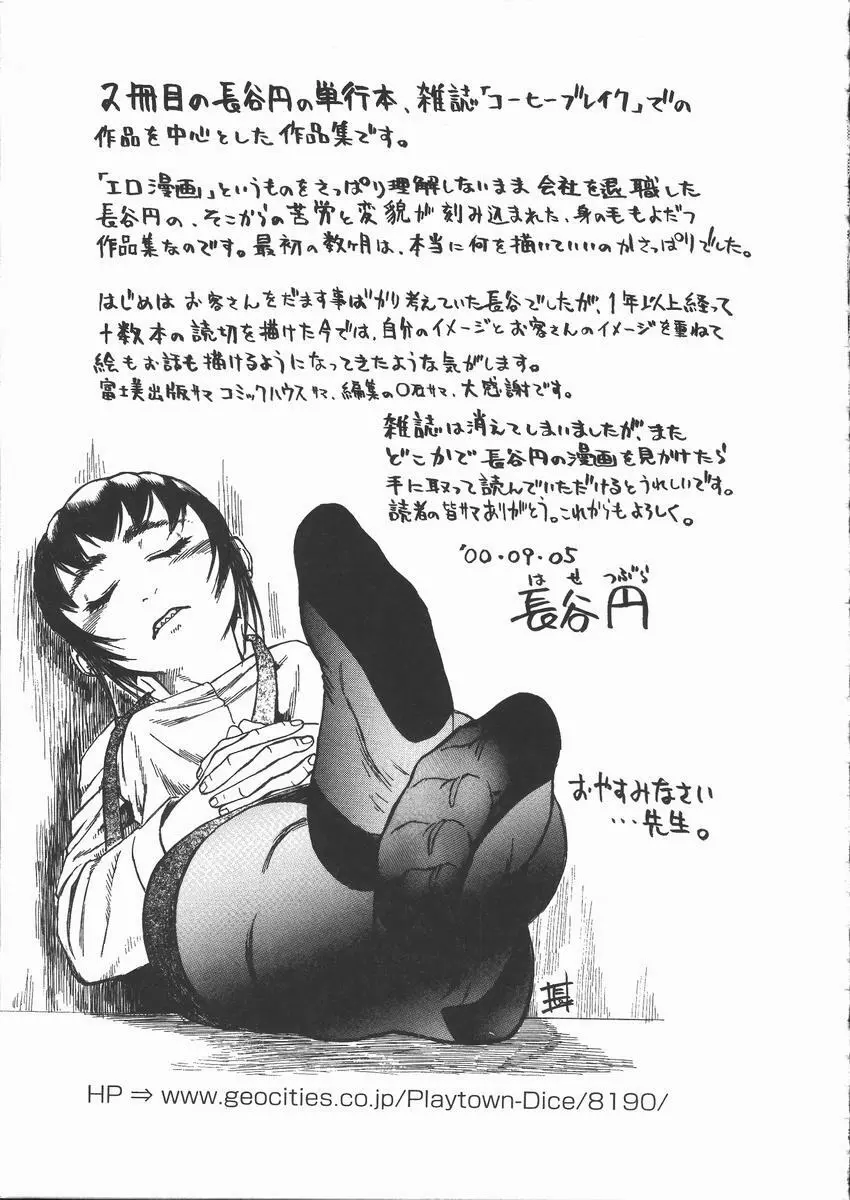 2冊目の長谷円の単行本、雑誌「コーヒーブレイク」での
作品を中心とした作品集です。
「エロ漫画」というものをさっぱり理解しないまま会社を退職した
長谷円の、そこからの苦労と変貌が刻み込まれた、身の毛もよだつ
作品集なのです。最初の数ヶ月は、本当に何を描いていいのかさっぱりでした。
はじめはお客さんをだます事ばかり考えていた長谷でしたが、1年以上経って
十数本の読切を描けた今では、自分のイメージとお客さんのイメージを重ねて
絵もお話も描けるようになってきたような気がします。
富士美出版サマ コミックハウスサマ、編集の〇石サマ、大感謝です。
雑誌は消えてしまいましたが、また
どこかで長谷円の漫画を見かけたら
手に取って読んでいただけるとうれしいです。
読者の皆サマありがとう。これからもよろしく。
'00・09・05
はせ つぶら
長谷円
おやすみなさい
…先生。
長
HP ⇒ www.geocities.co.jp/Playtown-Dice/8190/